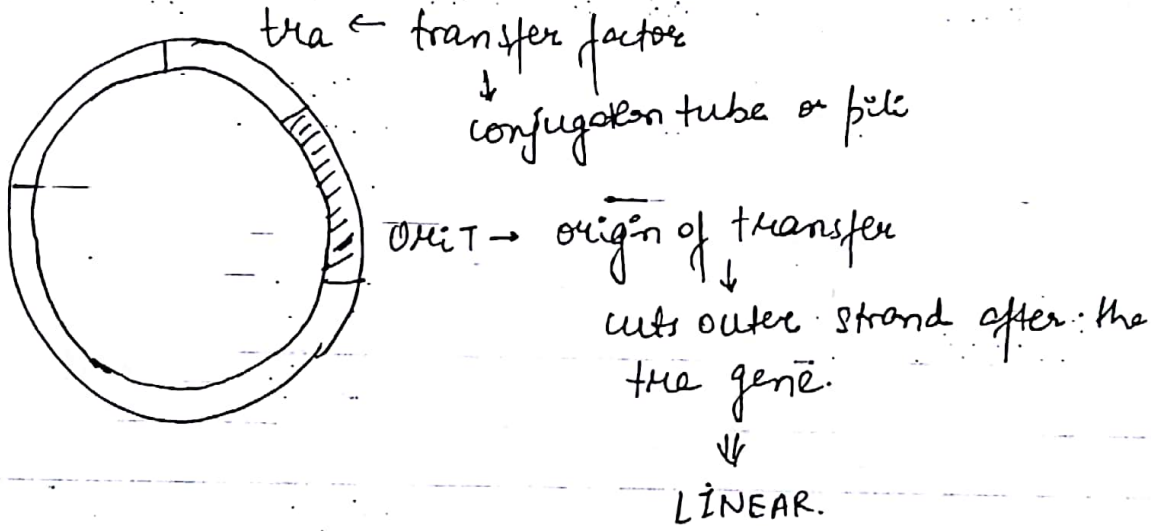 tra ← transfer factor
↓
conjugation tube or pili
ORiT → origin of transfer
↓
cuts outer strand after the
tra gene.
⇓
LINEAR.